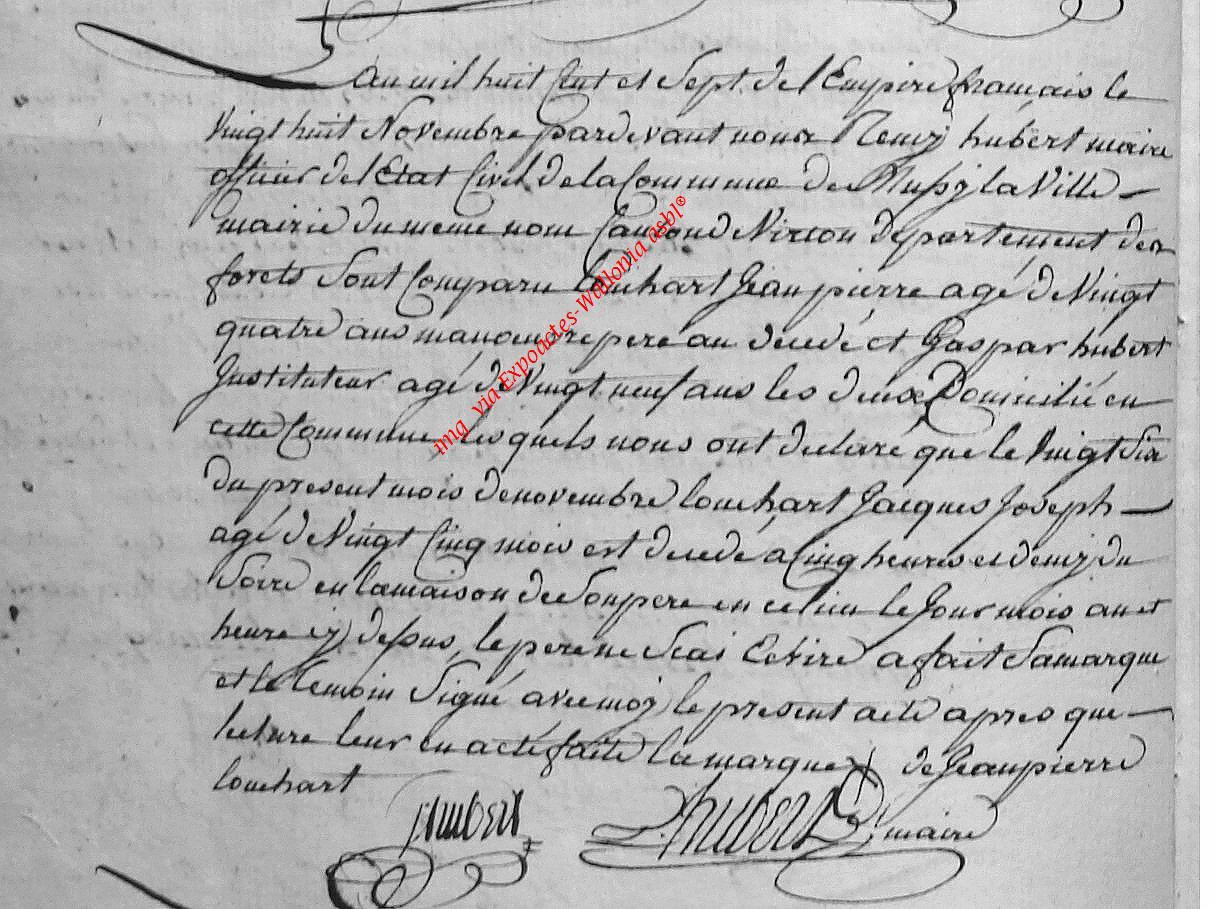 An mil huit Cent et Sept de l'Empire français le
Vingt huit Novembre pardevant nous Remy hubert maire
officier de l'Etat Civil de la Commune de Mussy la Ville
mairie du meme nom Canton de Virton Département des
forets Sont Comparu Louchart Jean pierre agé de Vingt
quatre ans manoeuvre pere au decedé et Gaspar hubert
Instituteur agé de Vingt neuf ans les deux Domicilié en
cette Commune lesquels nous ont declaré que le Vingt Six
du present mois de novembre louchart Jacques Joseph
agé de Vingt Cinq mois est decedé a Cinq heures et demy du
Soire en la maison de Son pere en ce lieu le Jour mois an et
heure cy dessus, le pere ne Scai Ecrire a fait Sa marque
et le temoin Signé avec moy le present acte apres que
lecture leur en a été faite la marque + de Jean pierre
louchart
hubert hubert maire
img_via Expoactes-Wallonia asbl®